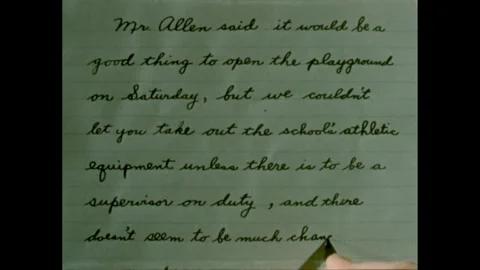 Mr. Allen said it would be a
good thing to open the playground
on Saturday, but we couldn't
let you take out the school's athletic
equipment unless there is to be a
supervisor on duty, and there
doesn't seem to be much chanc